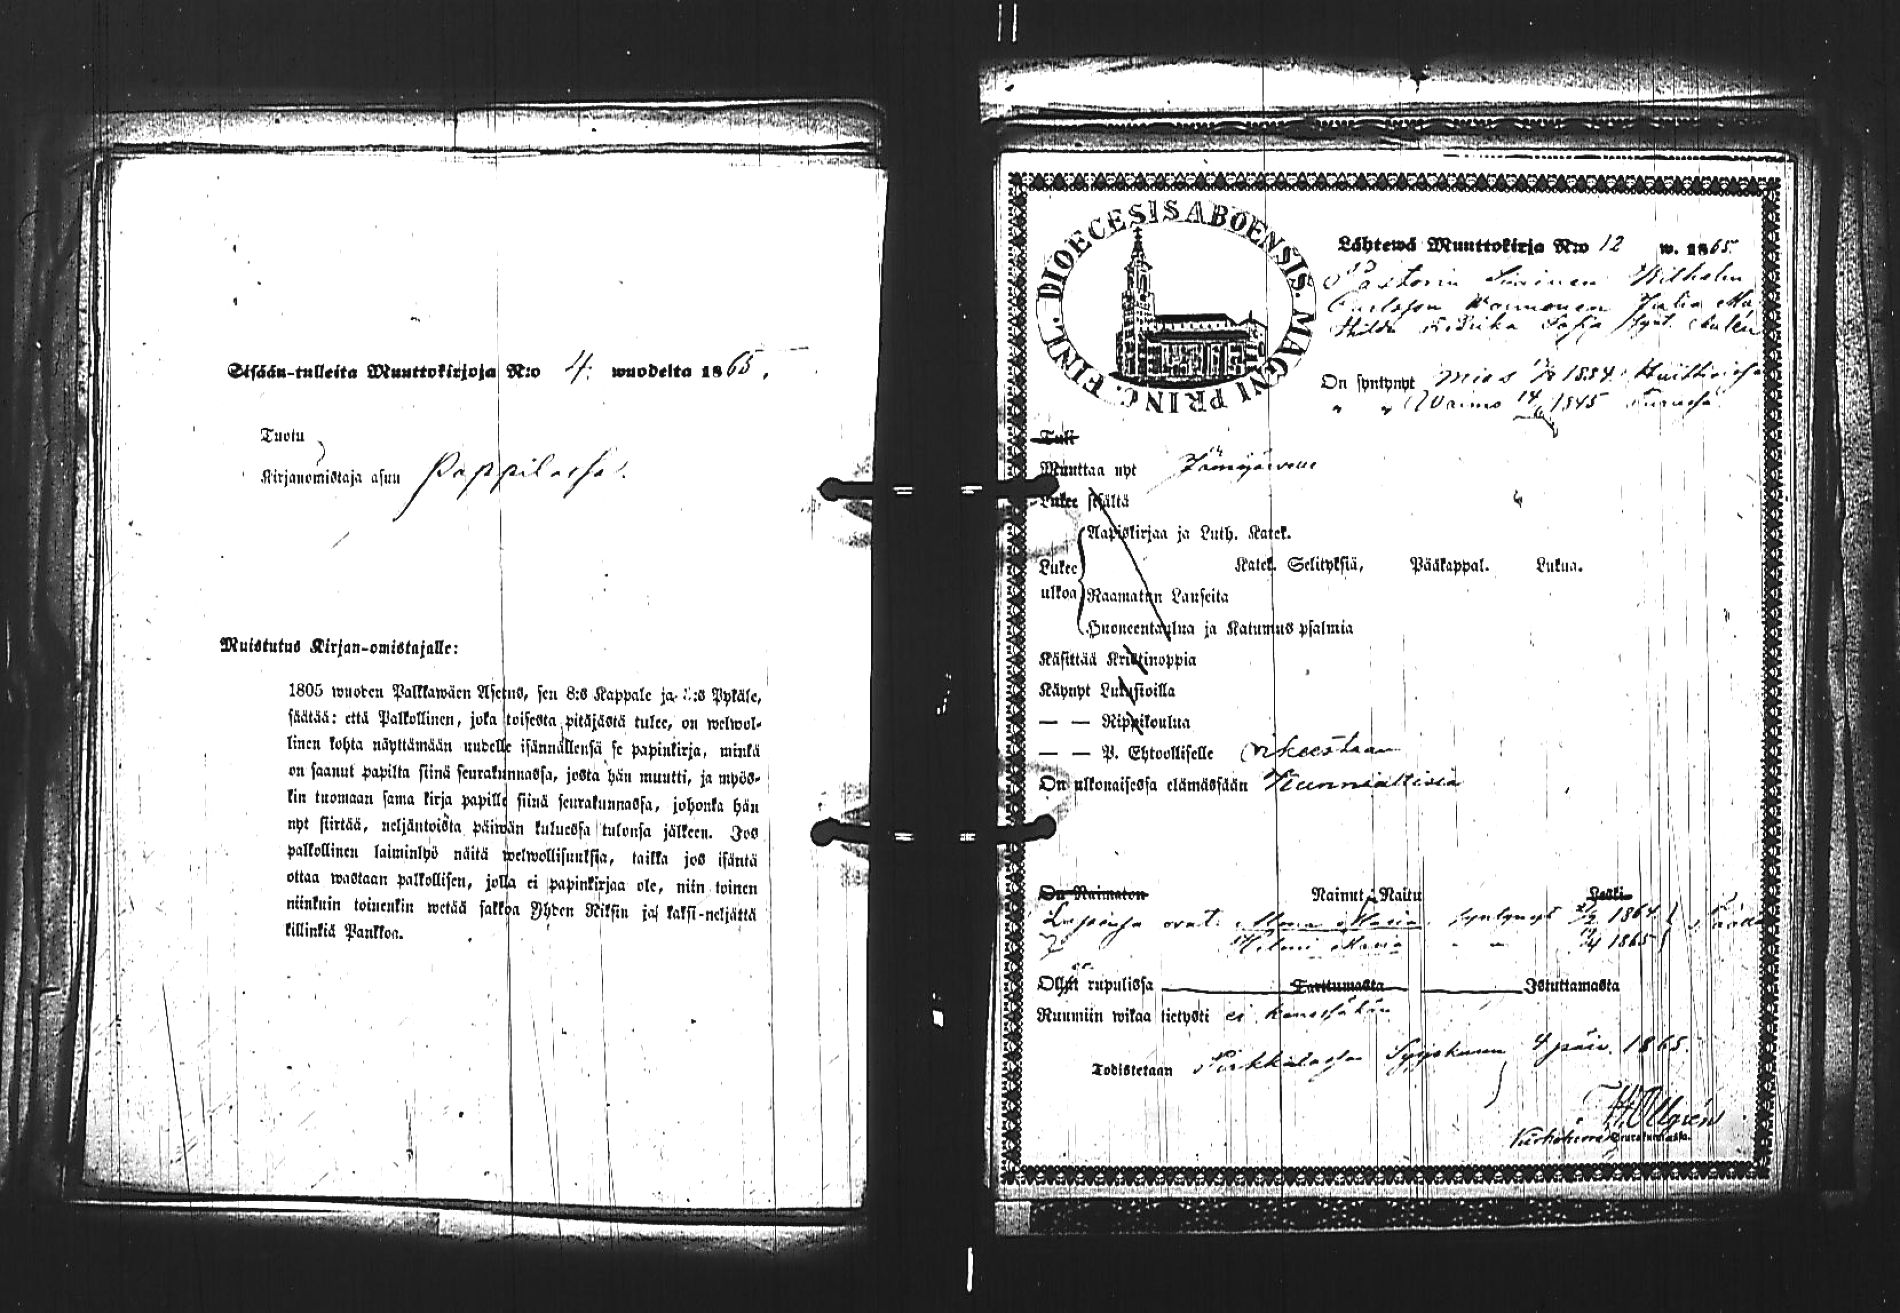 Sisään-tulleita Muuttokirjoja N:o 4. wuodelta 1865.
Tuotu
Kirjanomistaja asuu Pappilassa.
Muistutus Kirjan-omistajalle:
1805 wuoden Palkkawäen Asetus, sen 8:s Kappale ja :s Pykäle,
säätää: että Palkollinen, joka toisesta pitäjästä tulee, on welwol-
linen kohta näyttämään uudelle isännällensä se papinkirja, minkä
on saanut papilta siinä seurakunnassa, josta hän muutti, ja myös-
kin tuomaan sama kirja papille siinä seurakunnassa, johonka hän
nyt siirtää, neljäntoista päiwän kuluessa tulonsa jälkeen. Jos
palkollinen laiminlyö näitä welwollisuuksia, taikka jos isäntä
ottaa wastaan palkollisen, jolla ei papinkirjaa ole, niin toinen
niinkuin toinenkin wetää sakkoa Yhden Riksin ja kaksi-neljättä
killinkiä Pankkoa.
DIOECESIS ABOENSIS. MAGNI PRINC. FINL.
Lähtewä Muuttokirja N:o 12 w. 1865.
Pastorin Wilhelm
Carlsson Julia
Hilda Sofia
On syntynyt Mies 1834
" " Waimo 14 1845
Tuli
Muuttaa nyt Jämijärvelle
Lukee sisältä
Aapiskirjaa ja Luth. Katek.
Lukee ulkoa
Katek. Selityksiä, Pääkappal. Lukua.
Raamatun Lauseita
Huoneentaulua ja Katumus psalmia
Käsittää Kristinoppia
Käynyt Lukusioilla
— — Rippikoulua
— — P. Ehtoolliselle oikeestaan
On ulkonaisessa elämässään Kunniallisia
On Naimaton Nainut Naitu Leski
Lapsia ovat: Alma Maria syntynyt 1864
Hilma Maria " " 1865
Ollut rupulissa Tarttumasta Istuttamasta
Ruumiin wikaa tietysti ei
Todistetaan Pirkkalassa Syyskuun 4 päiv. 1865.
Kirkkoherra Seurakunnassa.